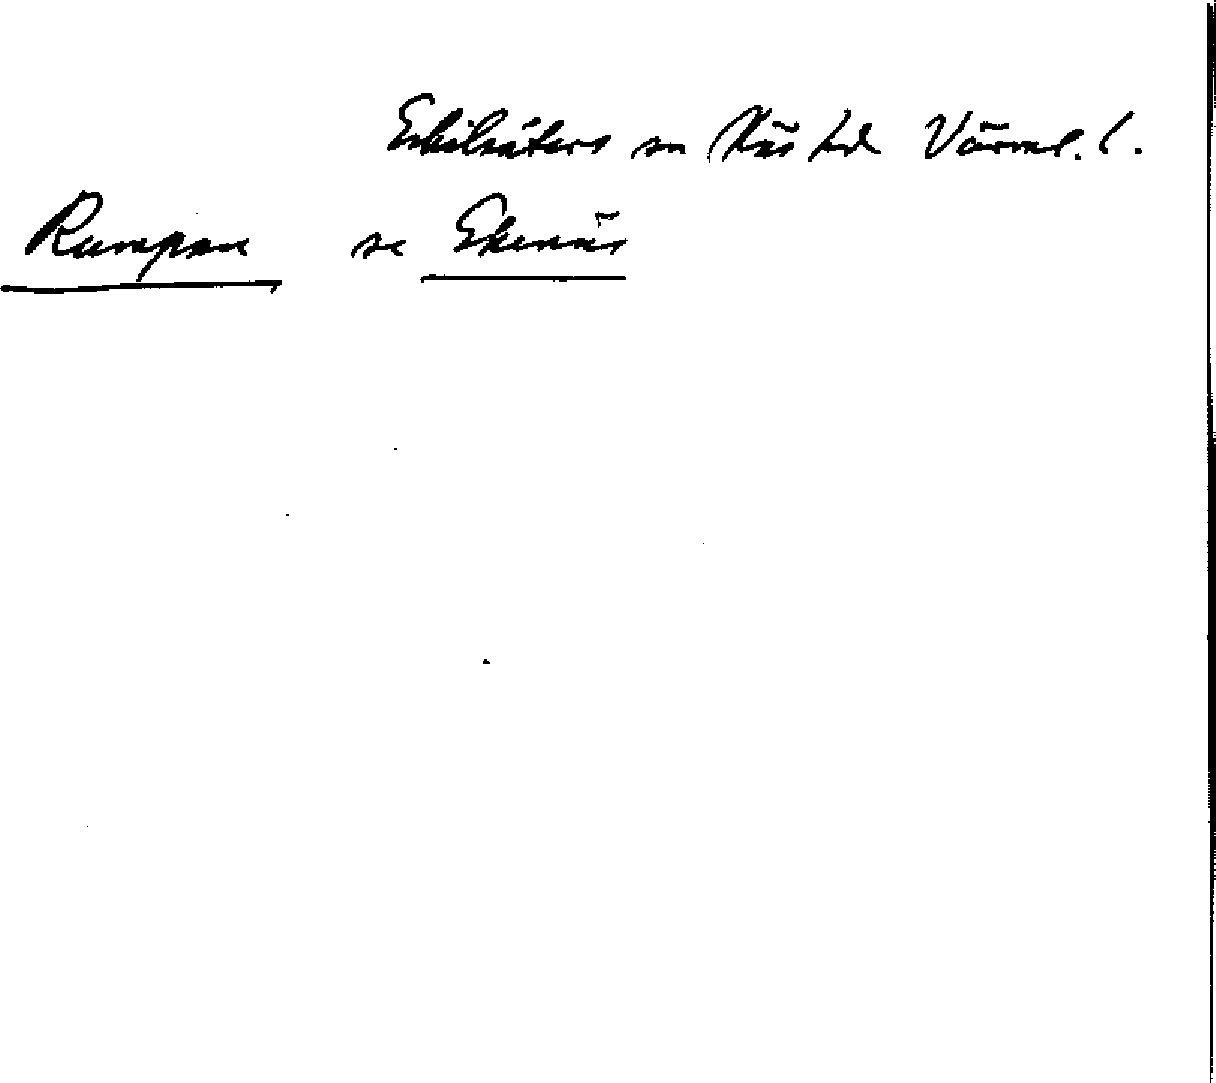 Eskilsäters sn Näs hd Värml. l.
Rumpan se Ekenäs